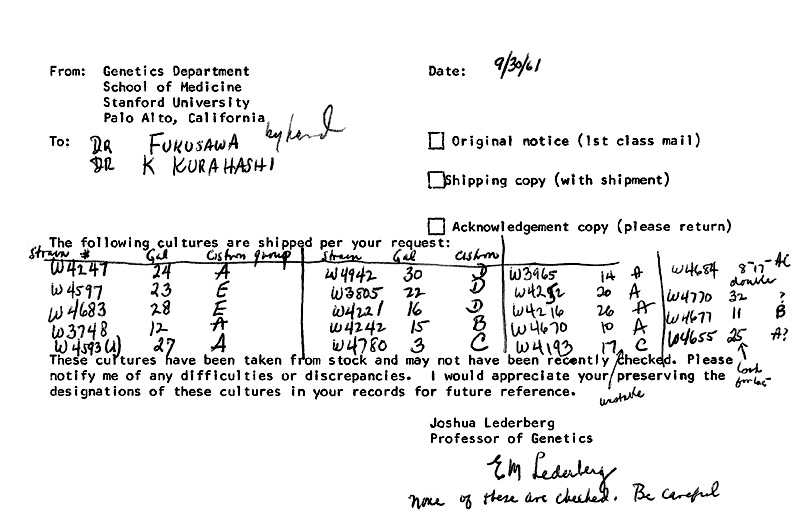 From: Genetics Department
School of Medicine
Stanford University
Palo Alto, California
Date: 9/30/61
To: DR FUKUSAWA by hand
DR K KURAHASHI
Original notice (1st class mail)
Shipping copy (with shipment)
Acknowledgement copy (please return)
The following cultures are shipped per your request:
Strain # Gal Cistron group Strain Gal Cistron
W4247 24 A W4942 30 D W3965 14 A W4684 8-17- AC
double
W4597 23 E W3805 22 D W4252 20 A W4770 32 ?
W4683 28 E W4221 16 D W4216 26 A W4677 11 B
W3748 12 A W4242 15 B W4670 10 A W4655 25 A?
W4593(4) 27 A W4780 3 C W4193 17 C
These cultures have been taken from stock and may not have been recently checked. Please
notify me of any difficulties or discrepancies. I would appreciate your preserving the
designations of these cultures in your records for future reference.
unstable
Joshua Lederberg
Professor of Genetics
EM Lederberg
none of these are checked. Be careful